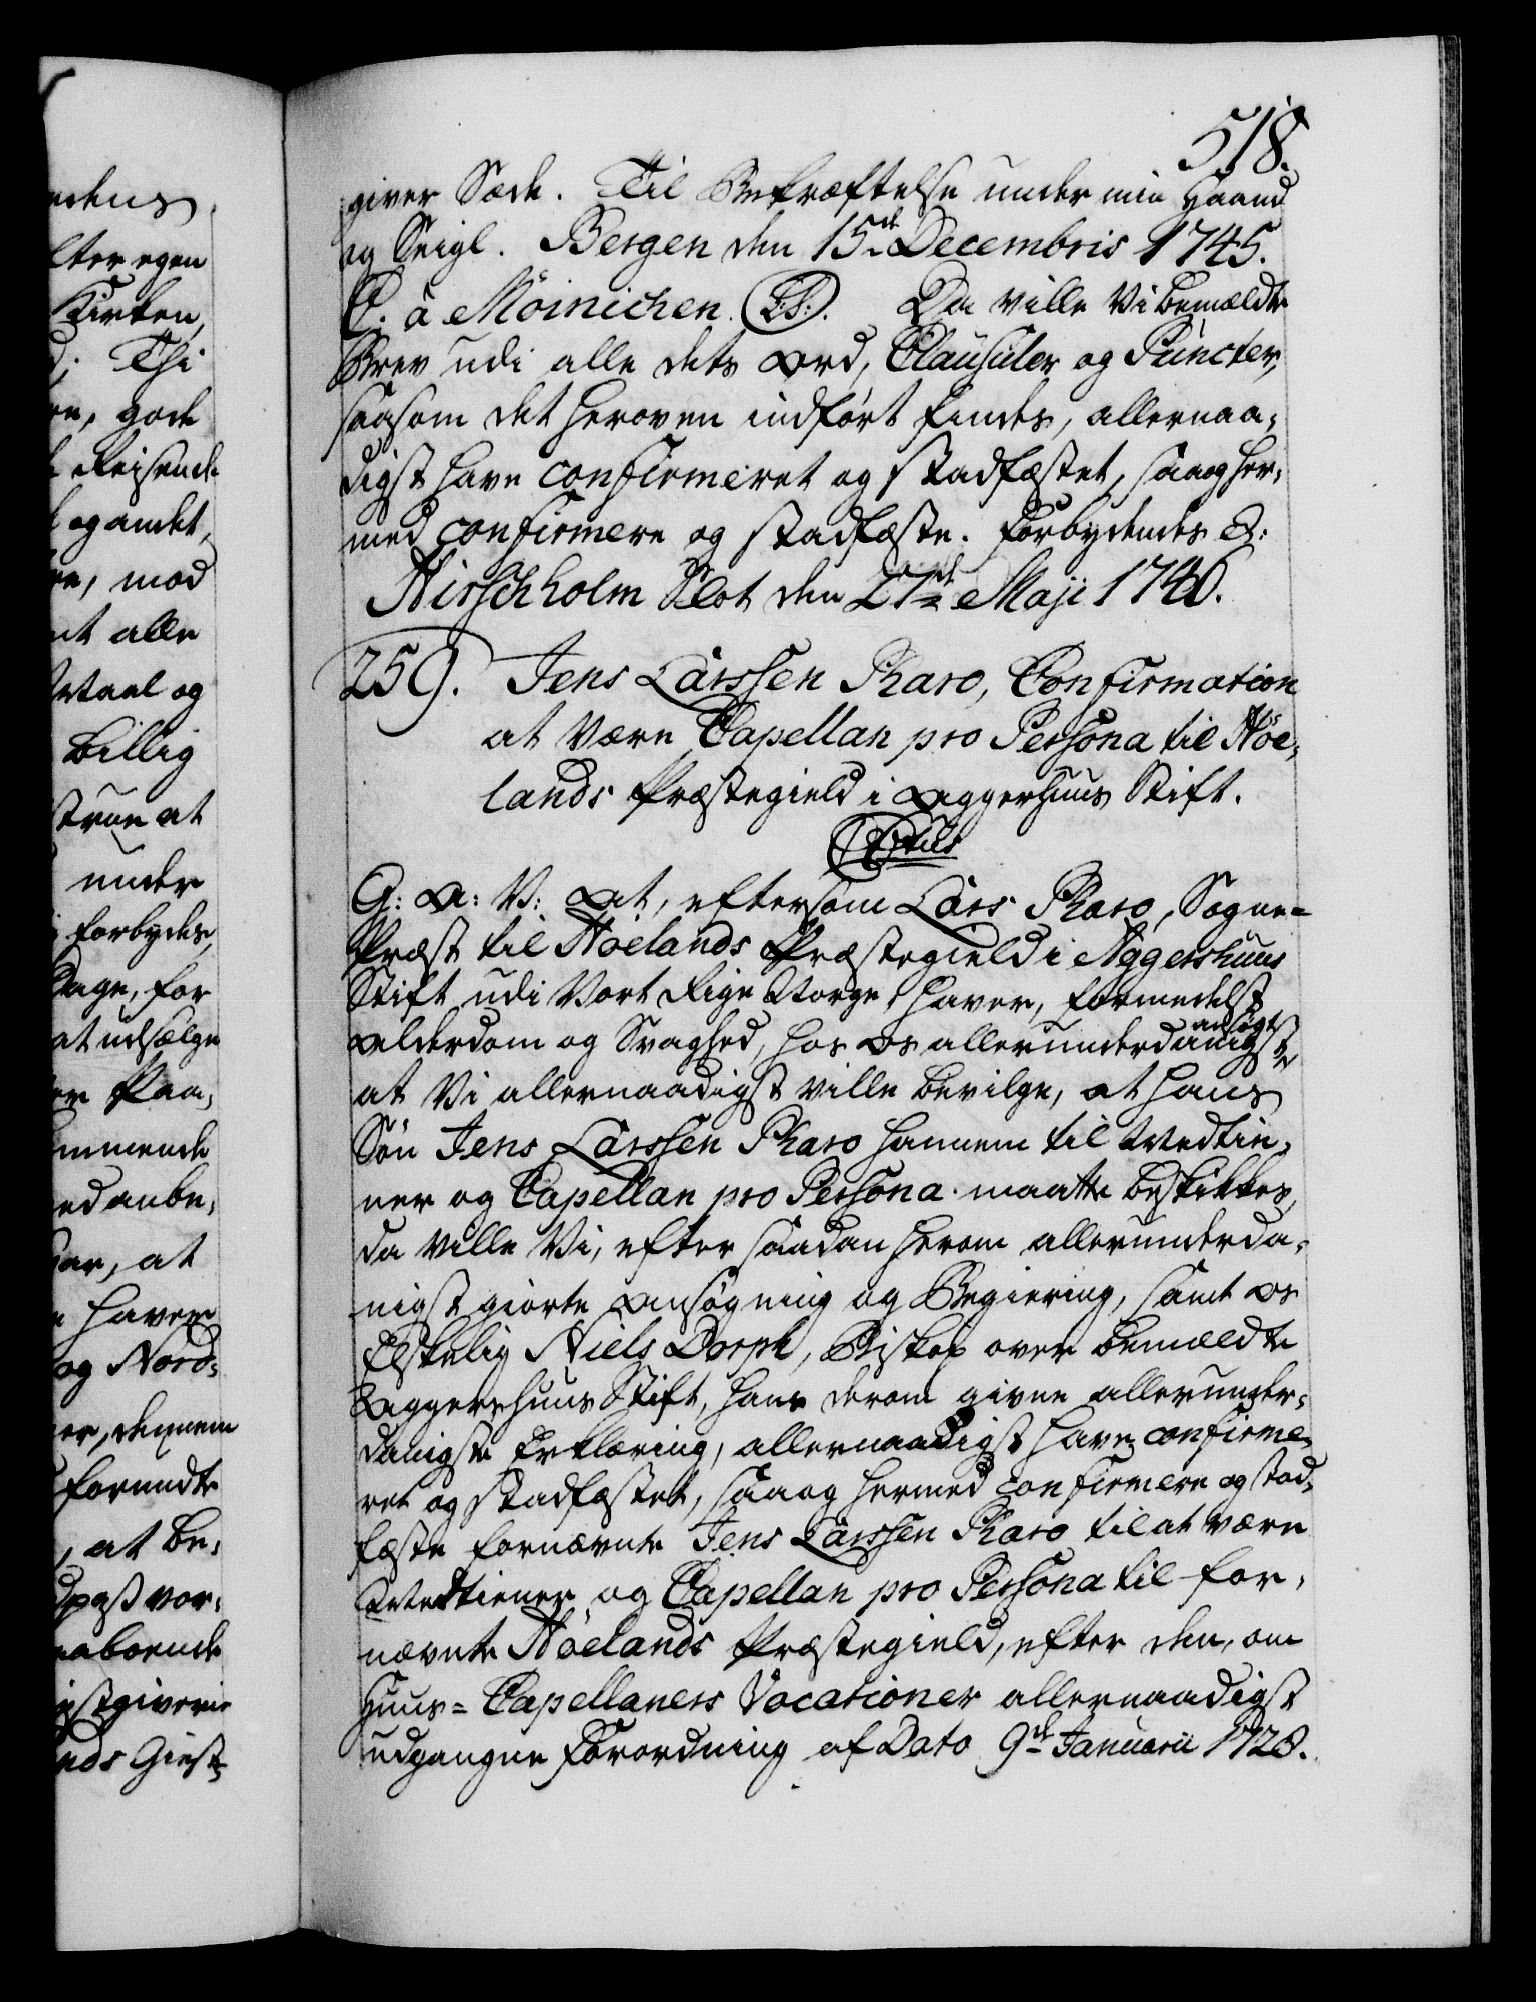 518.
giver Sæde. Til Bekræftelse under min Haand
og Seigl. Bergen den 15de Decembris 1745.
C. a Möinichen. (L.S.). Da ville Vi bemældte
Brev udi alle dets Ord, Clausuler og Puncter,
saasom det heroven indført findes, allernaa-
digst have confirmeret og stadfæstet, saa og her-
med confirmere og stadfæste. Forbydendes &:
Hirschholm Slot den 27de Maji 1746.
259. Jens Larssen Pharo, Confirmation
at være Capellan pro Persona til Höe-
lands Præstegield i Aggershuus Stift.
G: A: V: At, eftersom Lars Pharo, Sogne-
Præst til Höelands Præstegield i Aggershuus
Stift udi Vort Rige Norge, haver, formedelst
Alderdom og Svaghed, hos Os allerunderdanigst ansøgt
at Vi allernaadigst ville bevilge, at hans
Søn Jens Larssen Pharo hannem til Medtie-
ner og Capellan pro Persona maatte beskikkes,
da ville Vi, efter saadan herom allerunderda-
nigst giorte Ansøgning og Begiering, samt Os
Elskelig Niels Dorph, Biskop over bemældte
Aggershuus Stift, hans derom givne allerunder-
danigste Erklæring, allernaadigst have confirme-
ret og stadfæstet, saa og hermed confirmere og stad-
fæste fornævnte Jens Larssen Pharo til at være
Medtiener og Capellan pro Persona til for-
nævnte Höelands Præstegield, efter den, om
Huus-Capellaners Vocationer allernaadigst
udgangne Forordning af Dato 9de Januarii 1728.